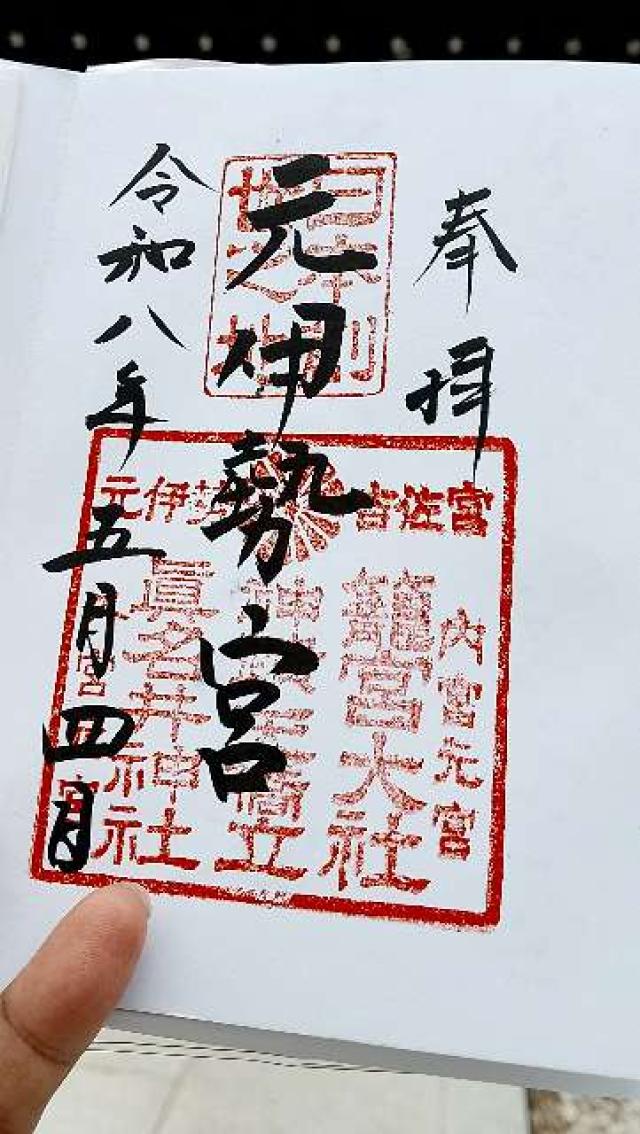 奉拝
元伊勢宮
令和八年五月四日
元伊勢 吉佐宮
内宮元宮
籠宮大社
橋立
眞名井神社